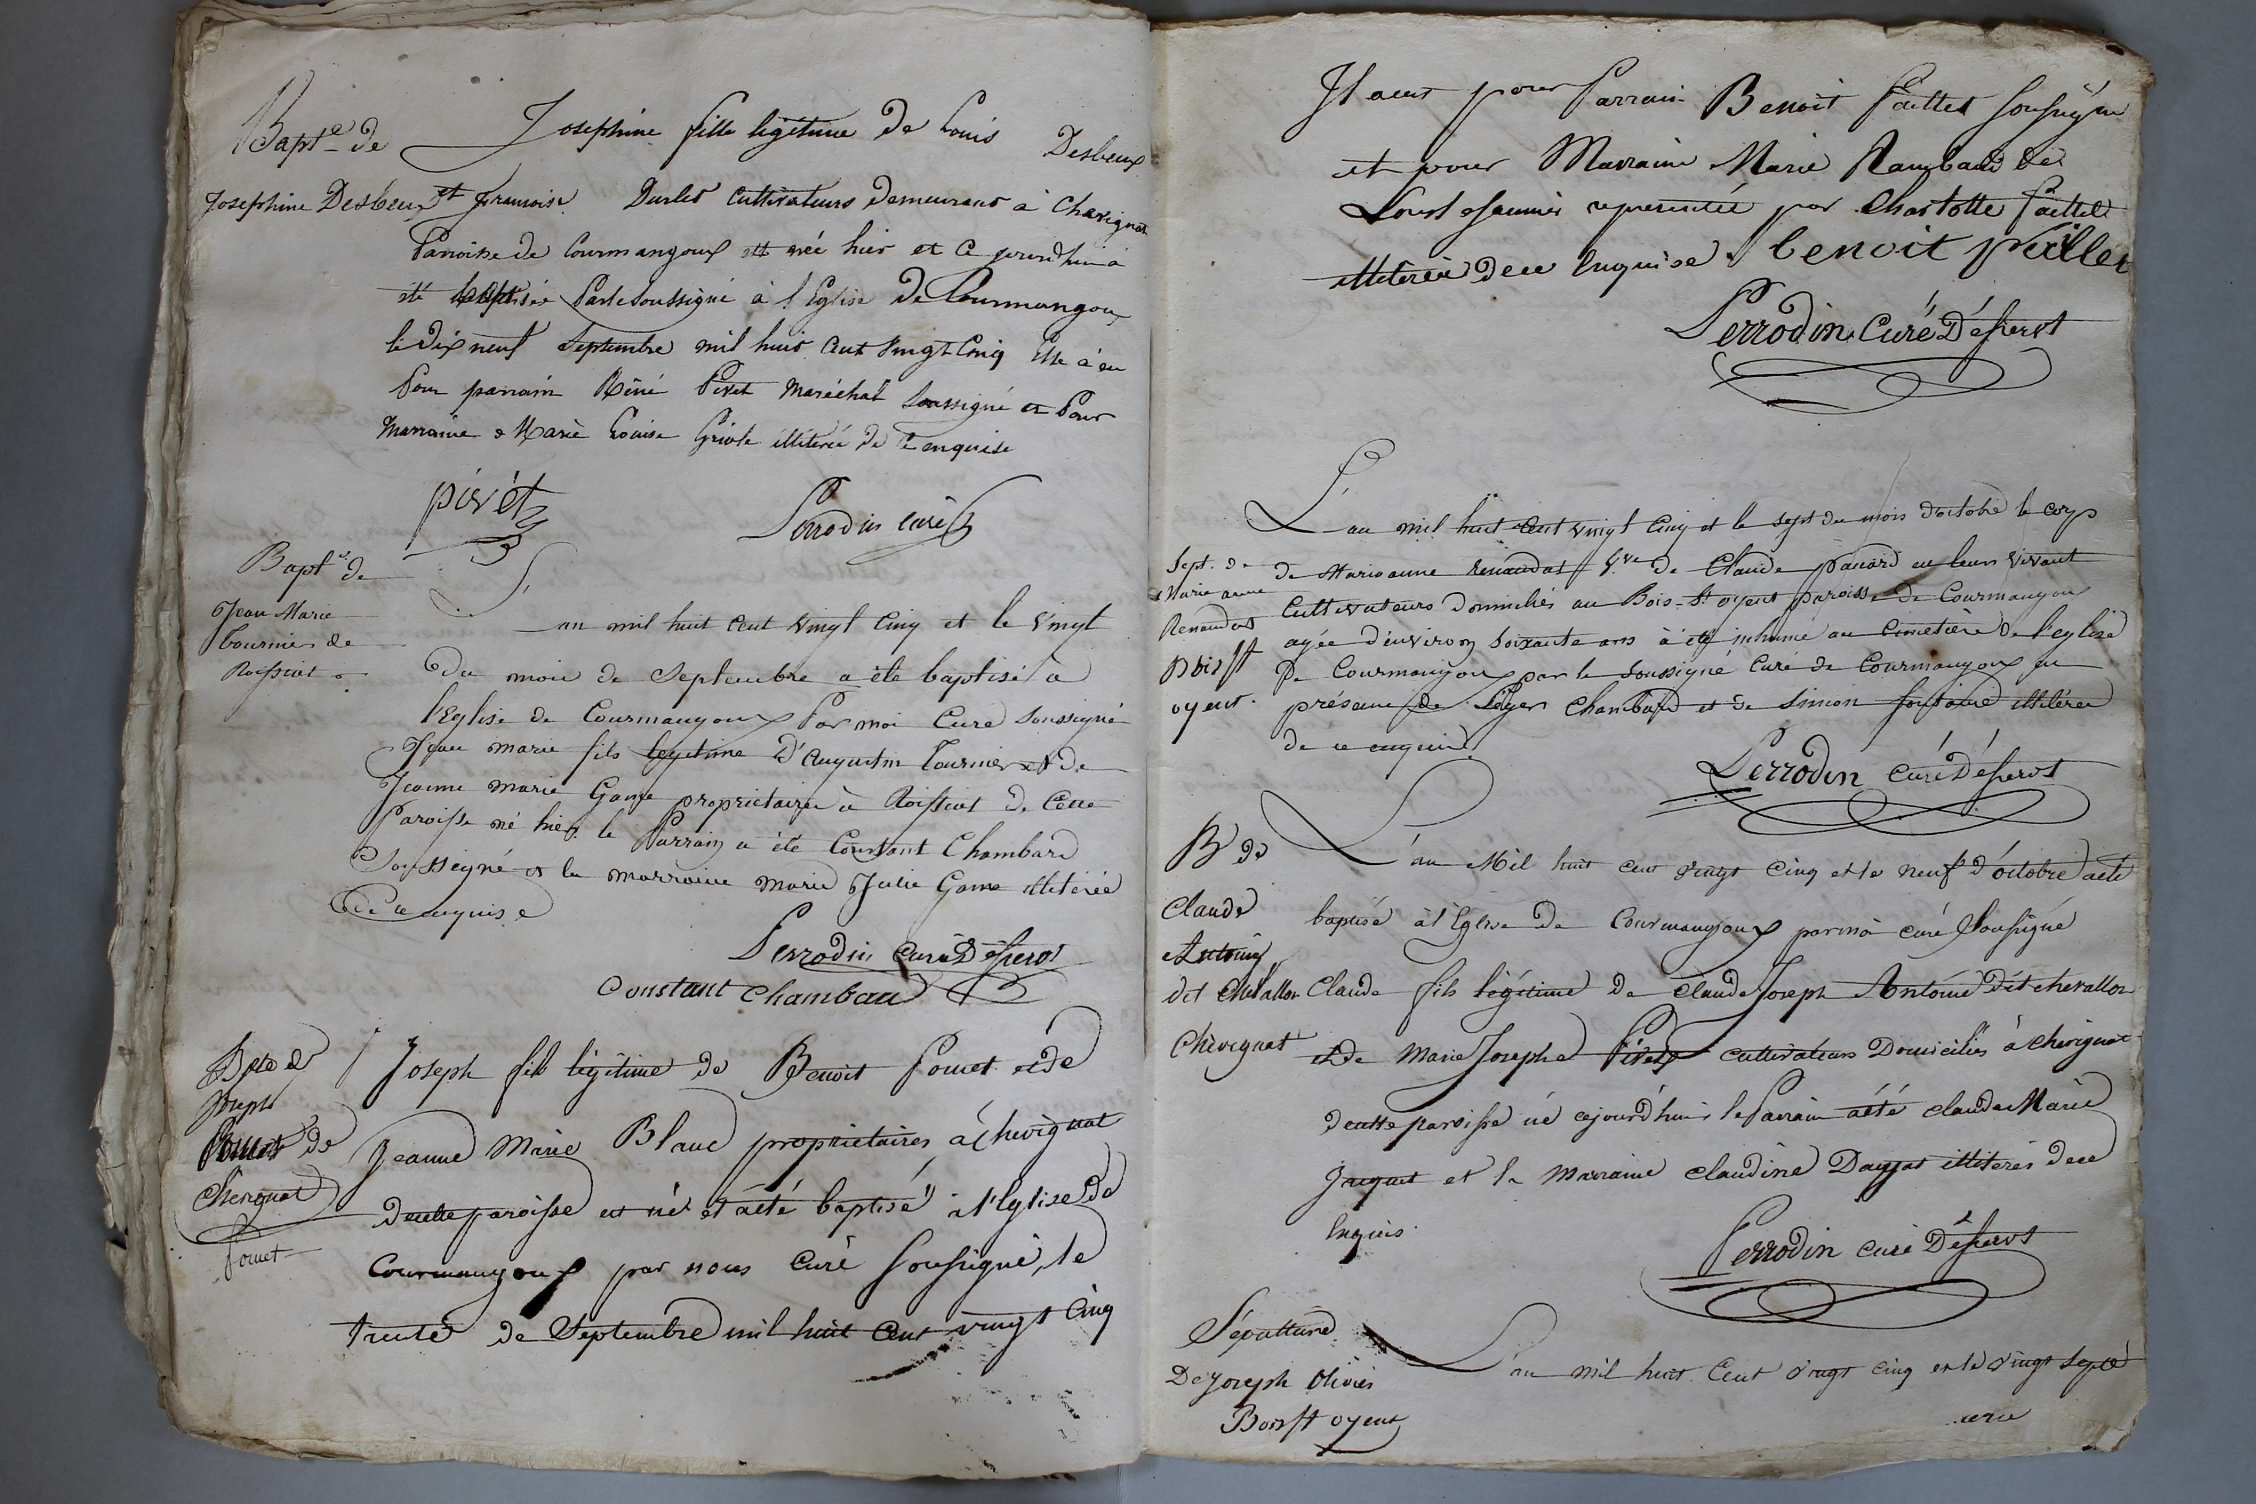 Bapt.e de
Josephine Desbeux
Josephine fille légitime de Louis Desbeux
et francoise Durlet cultivateurs demeurans à Chevignat
Paroisse de Courmangoux est née hier et ce jourdhui a
été baptisée Par le soussigné à l'Eglise de Courmangoux
le dix neuf Septembre mil huit cent vingt Cinq Elle a eu
Pour parrain Réné Pivet maréchal soussigné et Pour
marraine Marie Louise illiterée de ce enquise
pivét
Perrodin curé
Bapt.e de
Jean Marie
tournier de
Roissiat
L'an mil huit cent vingt cinq et le vingt
du mois de Septembre a été baptisé à
l'Eglise de Courmangoux Par moi Curé soussigné
Jean marie fils legitime d'augustin tournier et de
Jeanne marie Game proprietaires à Roissiat de cette
Paroisse né hier. le Parrain a été Constant Chambard
soussigné et la marraine marie Julie Game illiterée
de ce enquise
Perrodin curé Désserv.t
Constant Chambard
Bpte de
Joseph
Pomet de
Chevignat
Pomet
Joseph fils légitime de Benoit Pomet et de
Jeanne Marie Blanc proprietaires à Chevignat
de cette paroisse est né et a été baptisé à l'Eglise de
Courmangoux par nous Curé soussigné, le
trente de Septembre mil huit cent vingt cinq
Il a eu pour Parrain Benoit Paillet soussigné
et pour Marraine Marie Rambaud de
representée par Charlotte Paillet
illiterée de ce Enquise. benoit paillet
Perrodin Curé Désserv.t
Sept. de
Marie anne
Renaudat
Bois st
oyent.
L'an mil huit cent vingt cinq et le sept du mois d'octobre le corp
de Marie anne Renaudat V.ve de Claude panard en leur vivant
Cultivateurs domiciliés au Bois-St oyent paroisse de Courmangoux
agée d'environ soixante ans à été inhumé au cimetière de l'eglise
De Courmangoux par le soussigné Curé de Courmangoux en
présence de Chambard et de simon fontaine illiterés
de ce enquis
Perrodin Curé Désserv.t
B de
Claude
Antoine
dit Chevallon
Chevignat
L'an Mil huit cent vingt cinq et le neuf d'octobre a été
baptisé à l'Eglise de Courmangoux par moi curé soussigné
Claude fils légitime de Claude Joseph Antoine dit chevallon
et de Marie Josephe Pivet cultivateurs domiciliés à chevignat
de cette paroisse né ce jourd'hui le Parrain a été claude Marie
Jacquet et la Marraine claudine illiterés de ce
Enquis.
Perrodin curé Désserv.t
Sépulture
De Joseph Olivier
Bois st oyent
L'an mil huit cent vingt cinq et le vingt sept